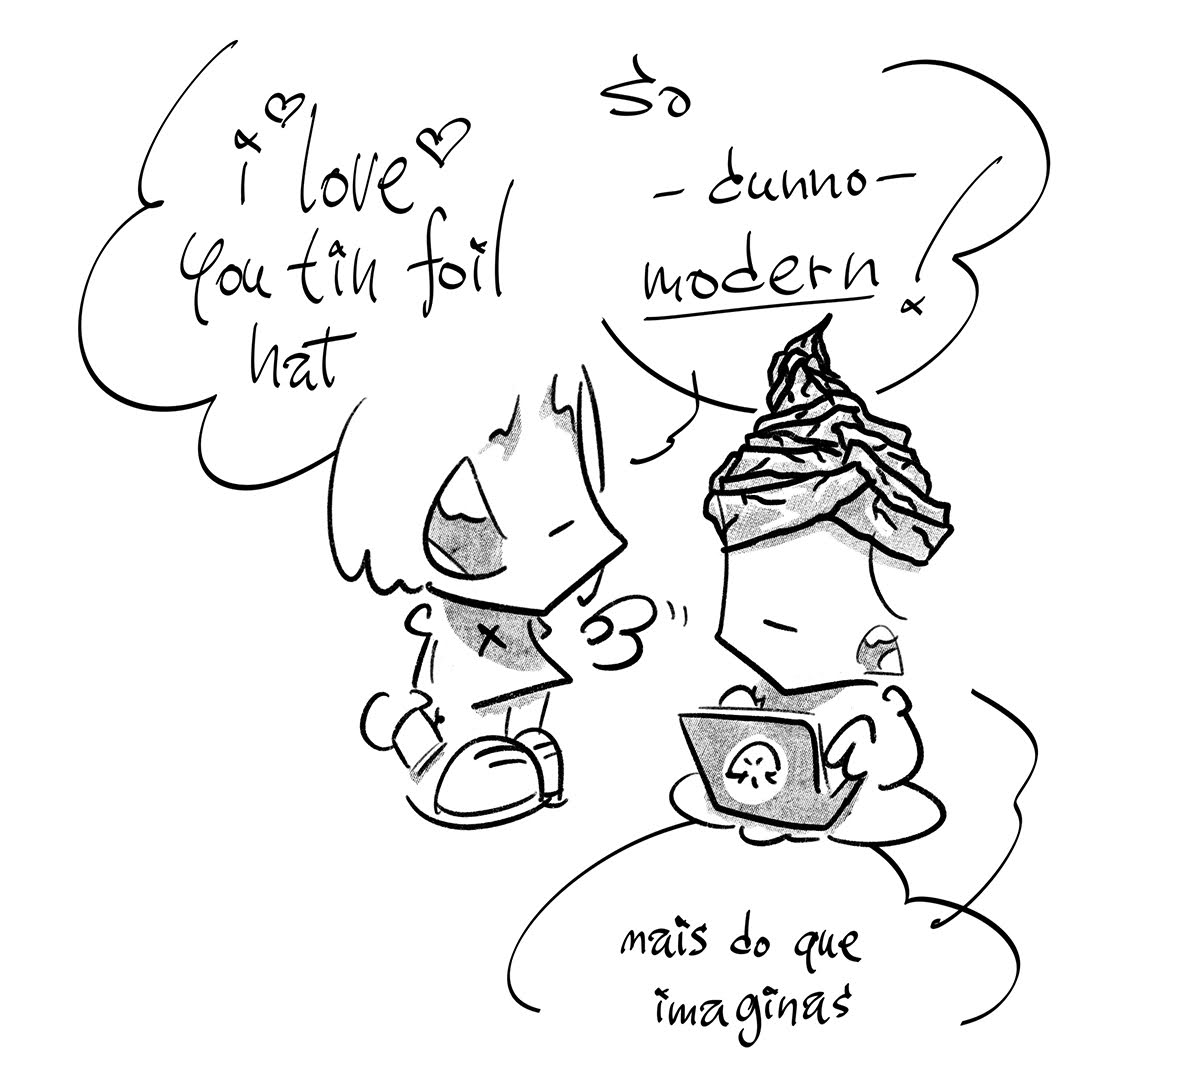 i love
you tin foil
hat
so
- dunno -
modern!
mais do que
imaginas